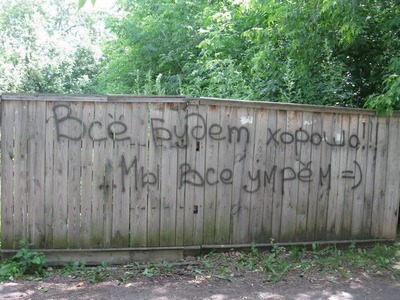 Всё Будет хорошо!!
Мы все умрём =)